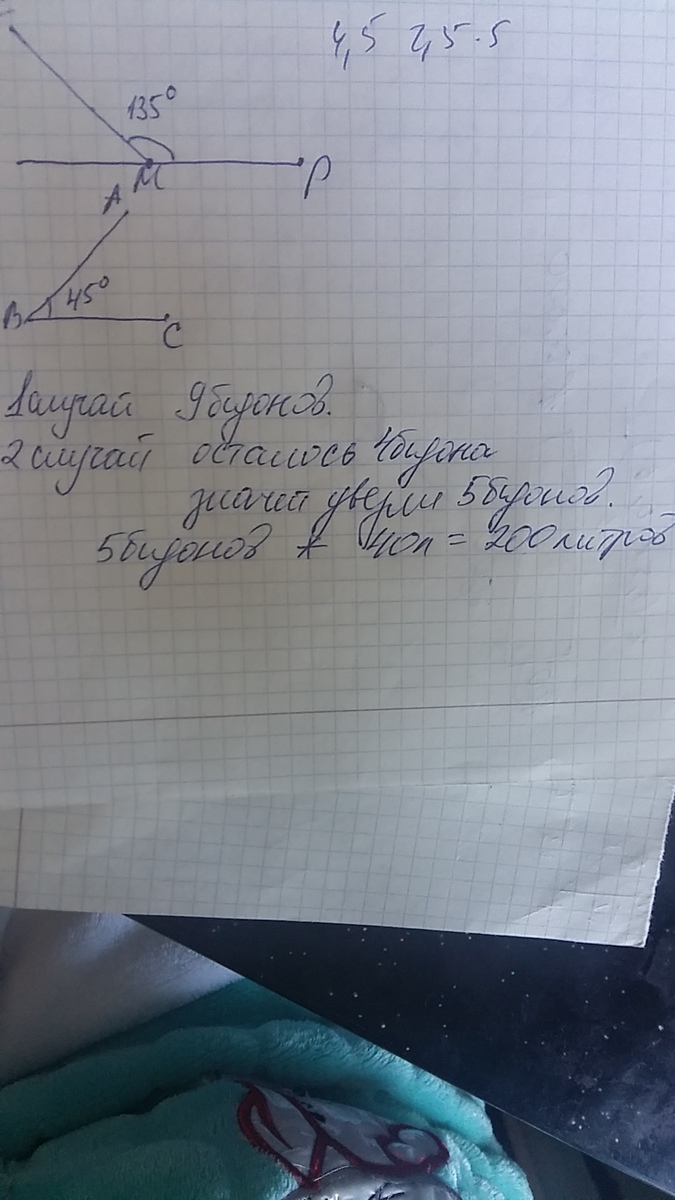 4,5 2,5·5
135°
М Р
А
45°
В
С
1 случай 9 бидонов.
2 случай осталось 4 бидона
значит увезли 5 бидонов.
5 бидонов * 40л = 200 литров